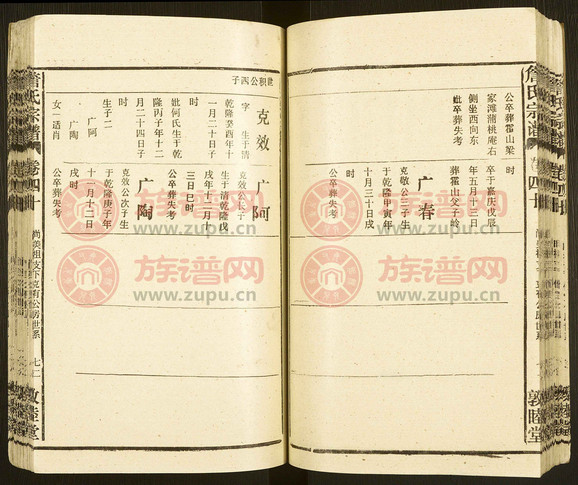 詹氏宗譜
卷四十
敦睦堂
公卒葬霍山梁
家滩蒲桃庵右
侧坐西向东
妣卒葬失考
时
卒于嘉庆戊辰
年五月十三日
葬霍山父子岭
广春
克敬公三子生
于乾隆甲寅年
十月三十日戌
世积公四子
克效
字 生于清
乾隆癸酉年十
一月二十日子
时
妣何氏生于乾
隆丙子年十二
月二十四日子
时
生子二
广阿
广陶
女一适肖
广阿
克效公长子
生于清乾隆戊
戌年十二月十
三日巳时
公卒葬失考
广陶
克效公次子生
于乾隆庚子年
十一月十二日
戌时
公卒葬失考
詹氏宗譜
卷四十
尚美祖支下克有公房世系
七二
敦睦堂
族谱网
www.zupu.cn
族谱网
www.zupu.cn